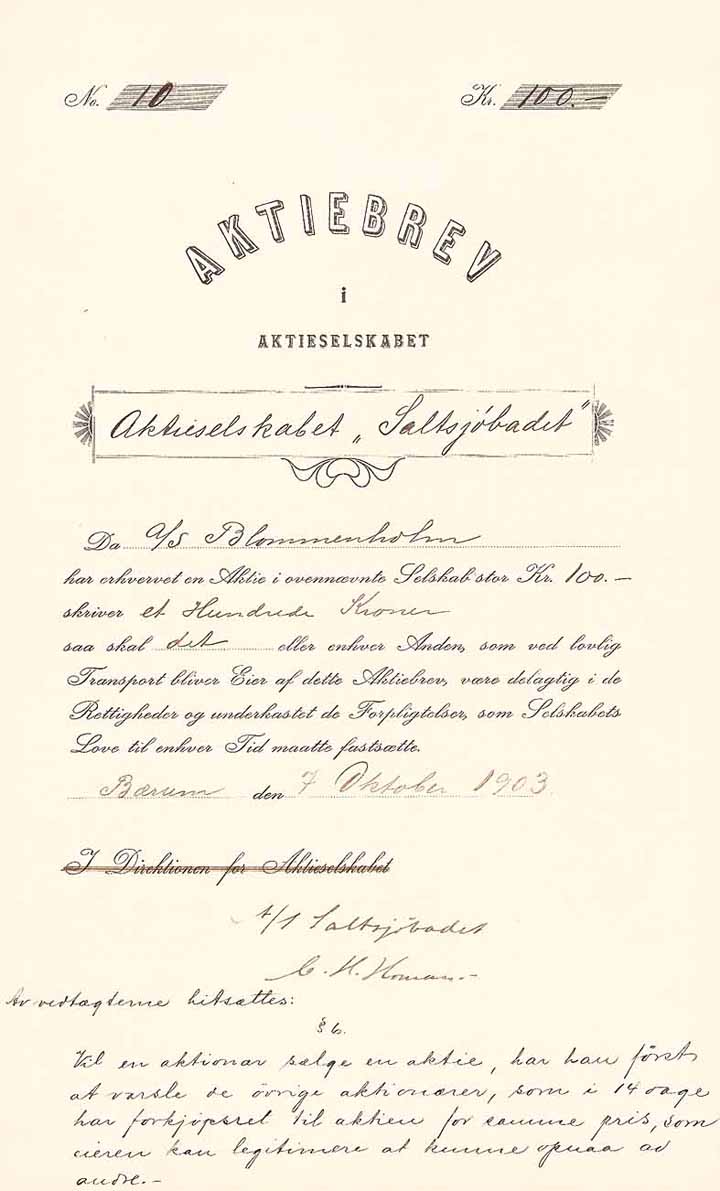 No. 10 Kr. 100.-
AKTIEBREV
i
AKTIESELSKABET
Aktieselskabet „Saltsjöbadet"
Da A/S Blommenholm
har erhvervet en Aktie i ovennævnte Selskab stor Kr. 100.-
skriver et Hundrede Kroner
saa skal det eller enhver Anden, som ved lovlig
Transport bliver Eier af dette Aktiebrev, være delagtig i de
Rettigheder og underkastet de Forpligtelser, som Selskabets
Love til enhver Tid maatte fastsætte.
Bærum den 7 Oktober 1903
I Direktionen for Aktieselskabet
A/S Saltsjöbadet
C. H. Homan.-
Av vedtægterne hitsættes:
§ 6.
Vil en aktionær sælge en aktie, har han först
at varsle de övrige aktionærer, som i 14 dage
har forkjöpsret til aktien for samme pris, som
eieren kan legitimere at kunne opnaa av
andre.-